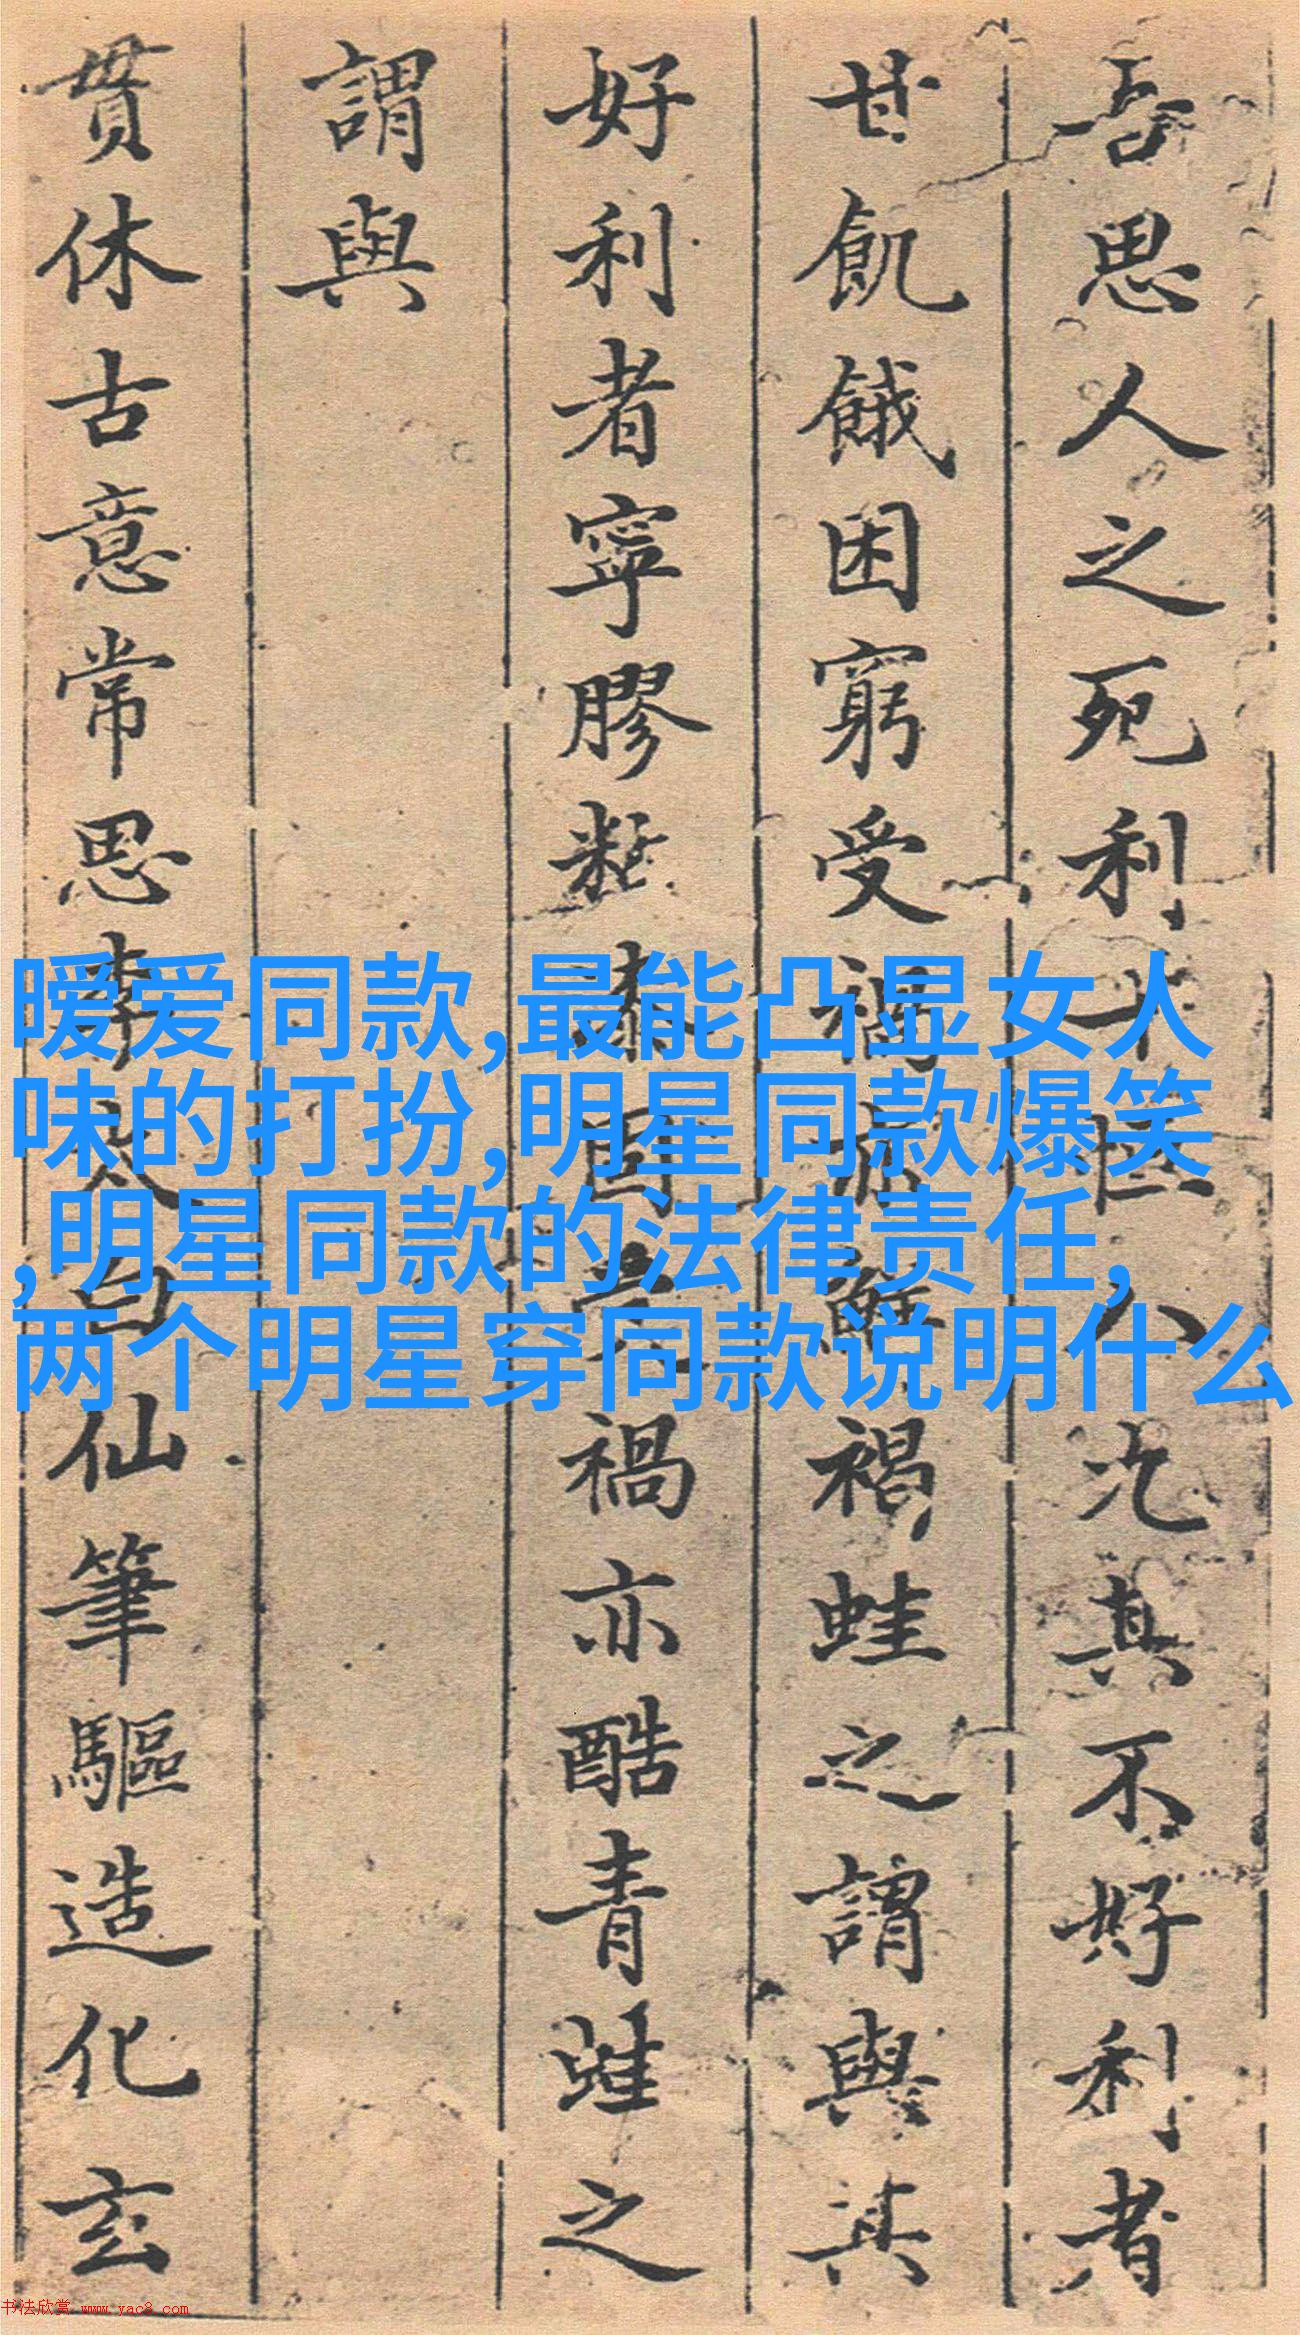 吾思人之死利十恒八九其不好利者
甘飢餓困窮受禍亦鮮褐蛙之謂與其
好利者寧膠黏 固其禍亦酷青蛙之
謂與
贯休古意常思李太白仙筆驅造化玄
暧爱同款,最能凸显女人
味的打扮,明星同款爆笑
,明星同款的法律责任,
两个明星穿同款说明什么
书法欣赏 www.yac8.com